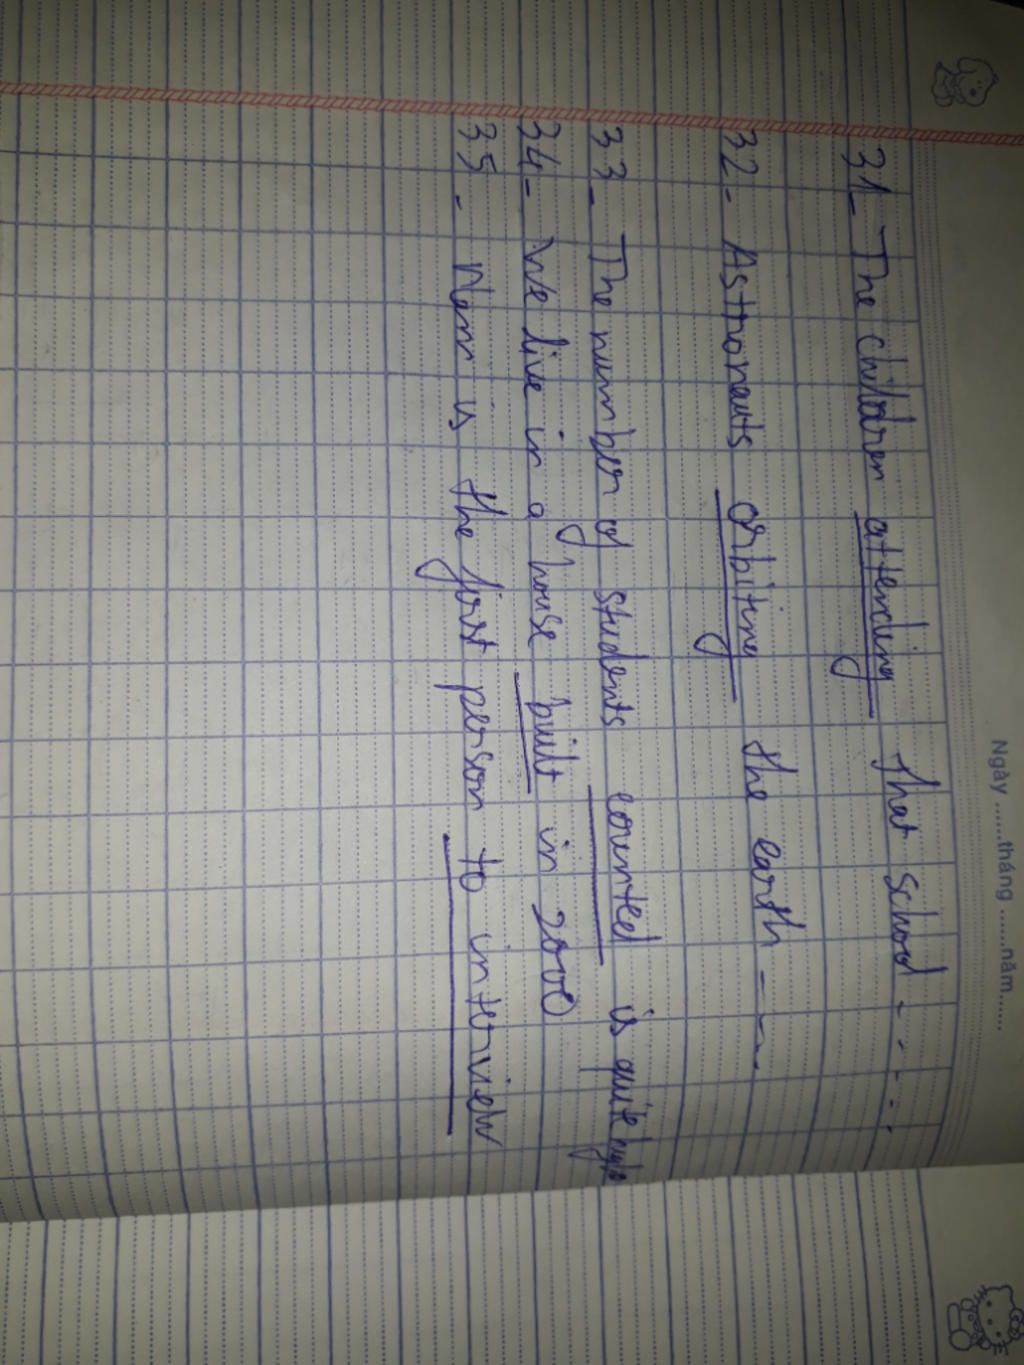 Ngày ......tháng ......năm......
31_ The children attending that school - - - -
32- Astronauts orbiting the earth - - -
33_ The number of students counted is quite
34- We live in a house built in 2000
35- Nam is the first person to interview